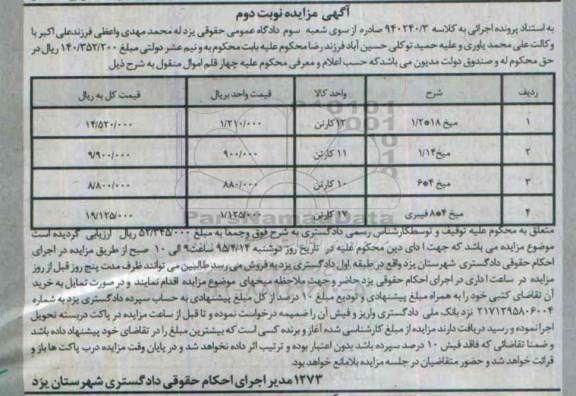 آگهی مزایده نوبت دوم
به استناد پرونده اجرائی به کلاسه ۹۴۰۲۴۰/۳ صادره از سوی شعبه سوم دادگاه عمومی حقوقی یزد له محمد مهدی واعظی فرزند علی اکبر با
وکالت علی محمد یاوری و علیه حمید توکلی حسین آباد فرزند رضا محکوم علیه بابت محکوم به و نیم عشر دولتی مبلغ ۱۴۰/۳۵۲/۲۰۰ ریال در
حق محکوم له و صندوق دولت مدیون می باشد که حسب اعلام و معرفی محکوم علیه چهار قلم اموال منقول به شرح ذیل
ردیف شرح واحد کالا قیمت واحد بریال قیمت کل به ریال
۱ میخ ۱۸*۱/۲ ۱۲ کارتن ۱/۲۱۰/۰۰۰ ۱۴/۵۲۰/۰۰۰
۲ میخ ۱/۱۴ ۱۱ کارتن ۹۰۰/۰۰۰ ۹/۹۰۰/۰۰۰
۳ میخ ۴*۶ ۱۰ کارتن ۸۸۰/۰۰۰ ۸/۸۰۰/۰۰۰
۴ میخ ۴*۸ فیبری ۱۷ کارتن ۱/۱۲۵/۰۰۰ ۱۹/۱۲۵/۰۰۰
متعلق به محکوم علیه توقیف و توسط کارشناس رسمی دادگستری به شرح فوق و جمعا به مبلغ ۵۲/۳۴۵۰۰۰ ریال ارزیابی گردیده است
موضوع مزایده می باشد که جهت ادای دین محکوم علیه در تاریخ روز دوشنبه ۹۵/۴/۱۴ ساعت ۹ الی ۱۰ صبح از طریق مزایده در اجرای
احکام حقوقی دادگستری شهرستان یزد واقع در طبقه اول دادگستری یزد به فروش می رسد طالبین می توانند ظرف مدت پنج روز قبل از روز
مزایده در ساعت اداری در اجرای احکام حقوقی یزد حاضر و جهت ملاحظه میخهای موضوع مزایده اقدام نمایند و در صورت تمایل به خرید
آن تقاضای کتبی خود را به همراه مبلغ پیشنهادی و تودیع مبلغ ۱۰ درصد از کل مبلغ پیشنهادی به حساب سپرده دادگستری یزد به شماره
۲۱۷۱۲۹۵۸۰۶۰۰۴ نزد بانک ملی دادگستری واریز و فیش آن را ضمیمه درخواست نموده و تا قبل از ساعت مزایده در پاکت دربسته تحویل
اجرا نموده و رسید دریافت دارند مزایده از مبلغ کارشناسی شده آغاز و برنده کسی است که بیشترین مبلغ را در تقاضای خود پیشنهاد داده باشد
و ضمنا تقاضائی که فاقد فیش ۱۰ درصد سپرده باشد بدون اعتبار بوده و ترتیب اثر داده نخواهد شد و در پایان وقت مزایده درب پاکت ها باز و
قرائت خواهد شد و حضور متقاضیان در جلسه مزایده بلامانع خواهد بود.
۱۲۷۳ مدیر اجرای احکام حقوقی دادگستری شهرستان یزد